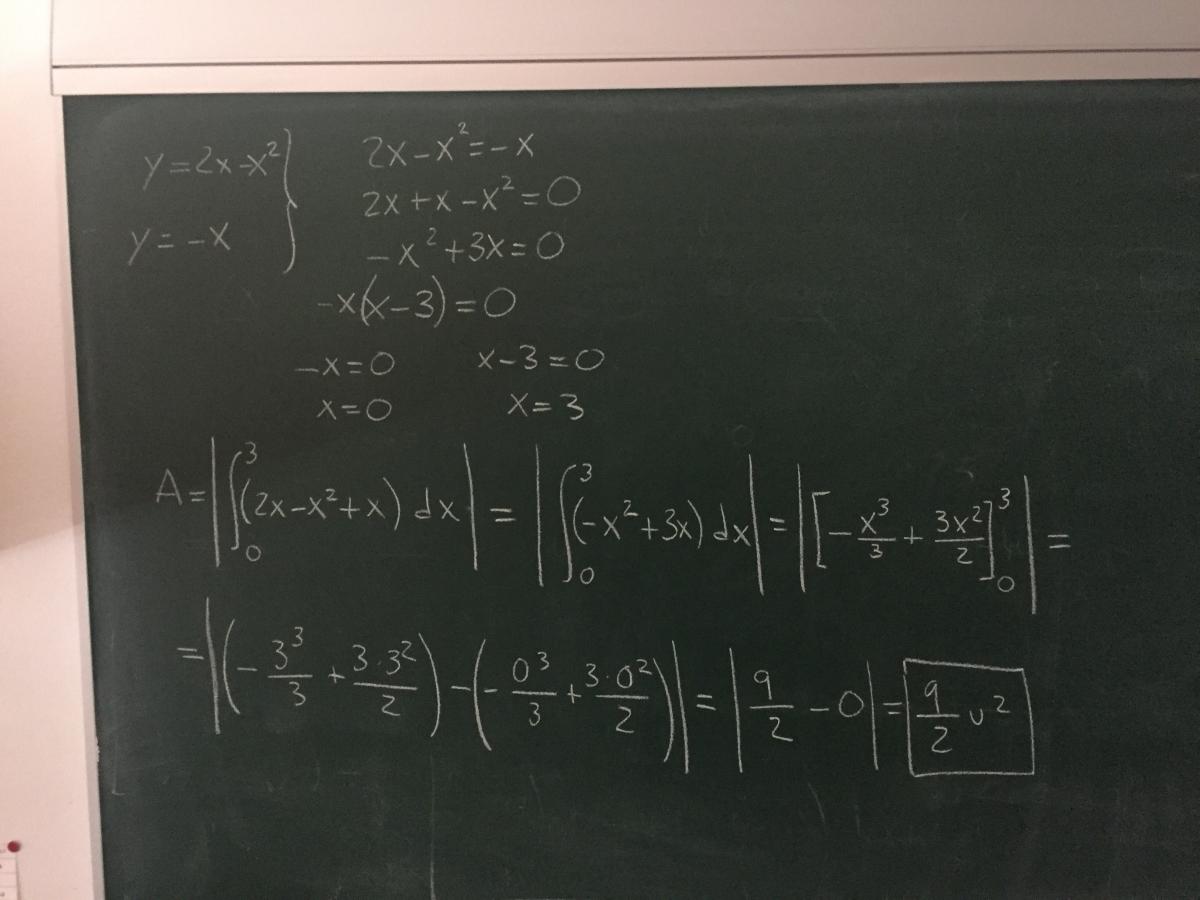 y=2x-x² } 2x-x²=-x
2x+x-x²=0
y=-x
-x²+3x=0
-x(x-3)=0
-x=0 x-3=0
x=0 x=3
A=|∫₀³(2x-x²+x) dx| = |∫₀³(-x²+3x) dx| = |[-x³/3 + 3x²/2]₀³| =
=|(-3³/3 + 3·3²/2) - (-0³/3 + 3·0²/2)| = |9/2 - 0| = 9/2 u²